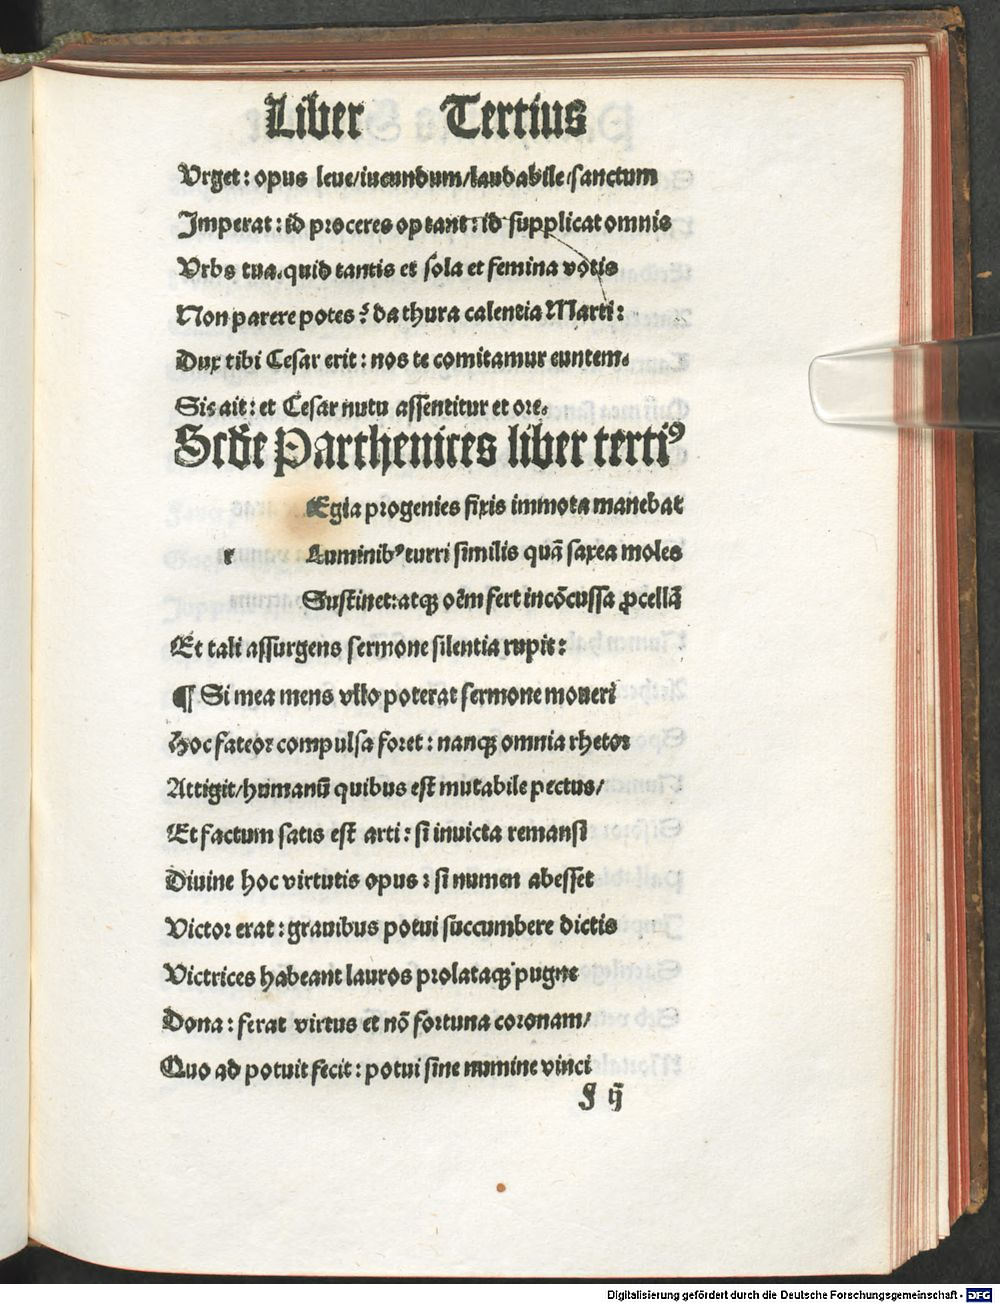 Liber Tertius
Vrget: opus leue/iucundum/laudabile/sanctum
Imperat: id proceres optant: id supplicat omnis
Vrbs tua. quid tantis et sola et femina votis
Non parere potes? da thura calentia Marti:
Dux tibi Cesar erit: nos te comitamur euntem.
Sis ait: et Cesar nutu assentitur et ore.
Scd̄e Parthenices liber terti⁹
Egia progenies fixis immota manebat
r Luminib⁹ turri similis quā saxea moles
Sustinet: atqꝫ oēm fert incōcussa ꝓcellā
Et tali assurgens sermone silentia rupit:
¶ Si mea mens vllo poterat sermone moueri
Hoc fateor compulsa foret: nanqꝫ omnia rhetor
Attigit/humanū quibus est mutabile pectus/
Et factum satis est arti: si inuicta remansi
Diuine hoc virtutis opus: si numen abesset
Victor erat: grauibus potui succumbere dictis
Victrices habeant lauros prolataqꝫ pugne
Dona: ferat virtus et nō fortuna coronam/
Quo ad potuit fecit: potui sine numine vinci
g ij
Digitalisierung gefördert durch die Deutsche Forschungsgemeinschaft - DFG